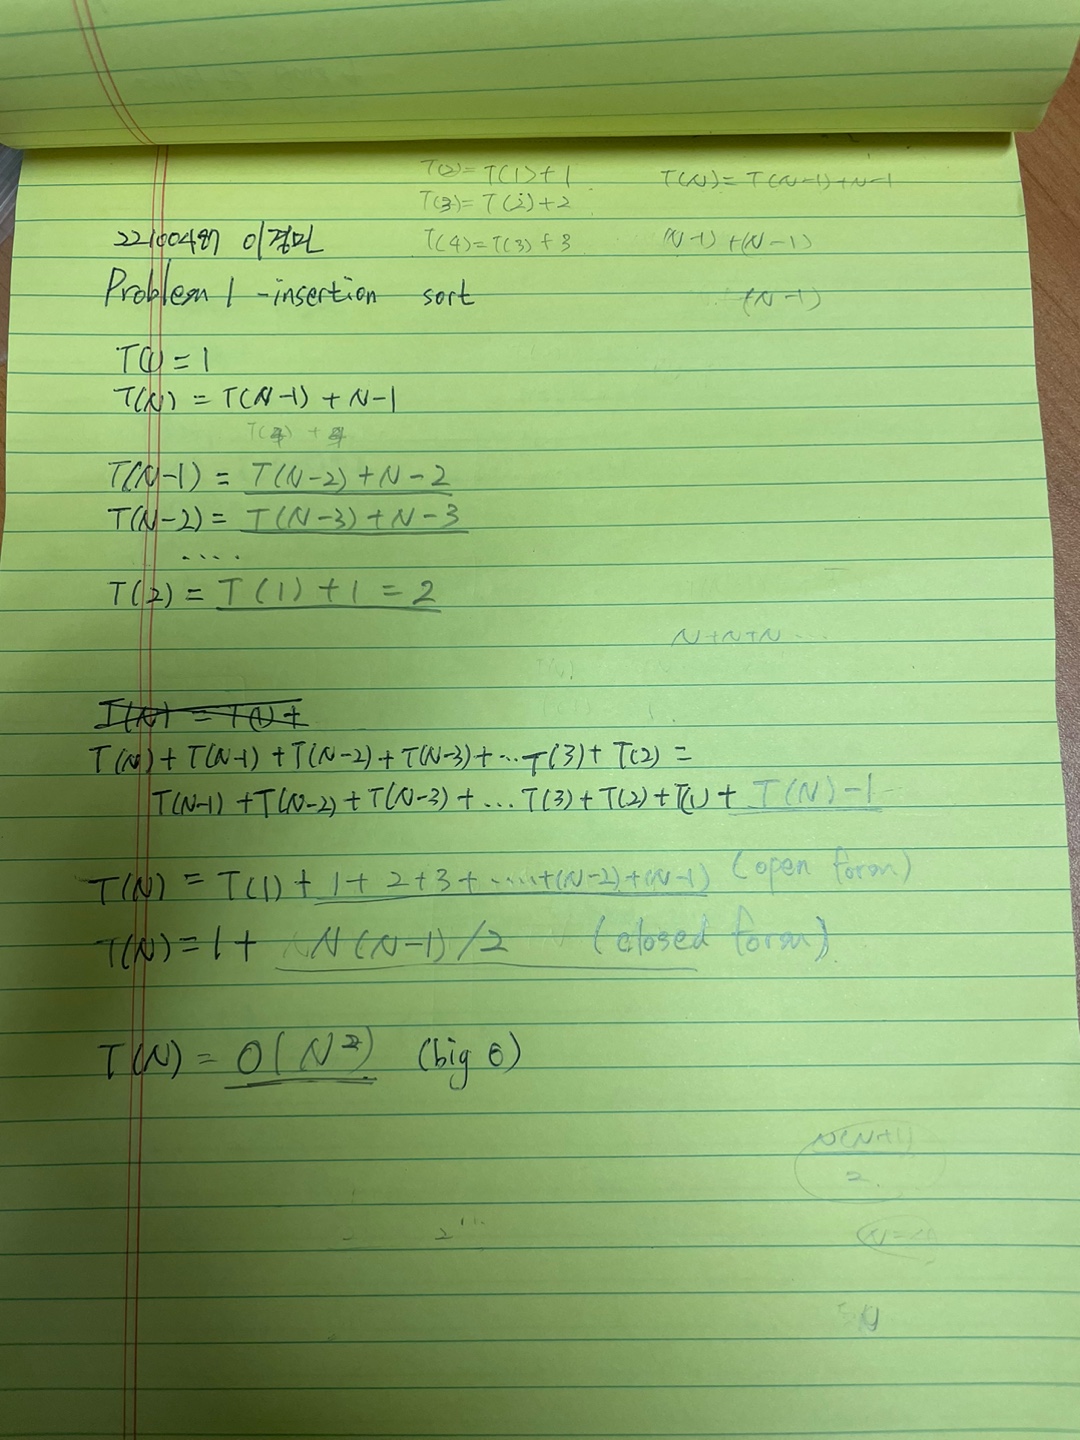 T(2)= T(1)+1
T(N)= T(N-1)+N-1
T(3)= T(2)+2
T(4)=T(3)+3
(N-1)+(N-1)
+(N-1)
22100487 이경민
Problem 1 -insertion sort
T(1) = 1
T(N) = T(N-1) + N-1
T(N-1) = T(N-2)+N-2
T(N-2) = T(N-3)+N-3
....
T(2) = T(1)+1 = 2
N+N+N ...
T(N) = T(1)+
T(N)+T(N-1)+T(N-2)+T(N-3)+...T(3)+T(2) =
T(N-1)+T(N-2)+T(N-3)+...T(3)+T(2)+T(1)+ T(N)-1
T(N) = T(1)+1+2+3+.....+(N-2)+(N-1) (open form)
T(N)=1+ N(N-1)/2 (closed form)
T(N) = O(N²) (big O)
N(N+1)
2